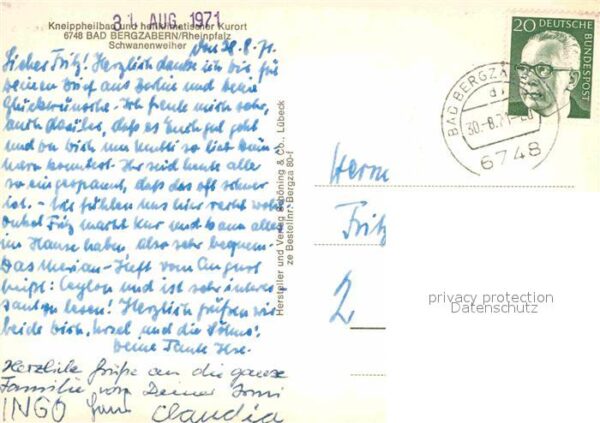 31. AUG. 1971
Kneippheilbad und heilklimatischer Kurort
6748 BAD BERGZABERN/Rheinpfalz
Schwanenweiher
den 28.8.71.
Lieber Fritz! Herzlich danke ich dir für
deinen Brief aus Berlin und deine
Glückwünsche. Ich freute mich sehr,
auch darüber, daß es Euch gut geht
und du dich um Mutti so lieb
kümmern konntest. Ihr seid heute alle
so eingespannt, daß das oft schwer
ist. - Wir fühlen uns hier recht wohl
Onkel Fritz macht Kur und kann alles
im Hause haben, also sehr bequem.
Das Merian-Heft vom August
heißt: Ceylon und ist sehr interes-
sant zu lesen! Herzlich grüßen wir
beide dich, Ursel und die Söhne!
Deine Tante Ilse.
Herzliche Grüße an die ganze
Familie von Deiner Omi
INGO Claudia
Hersteller und Verlag Schöning & Co., Lübeck
ze Bestellnr. Bergza 80-f
20 DEUTSCHE
BUNDESPOST
BAD BERGZABERN
30.-8.71
6748
Herrn
Fritz
2
privacy protection
Datenschutz